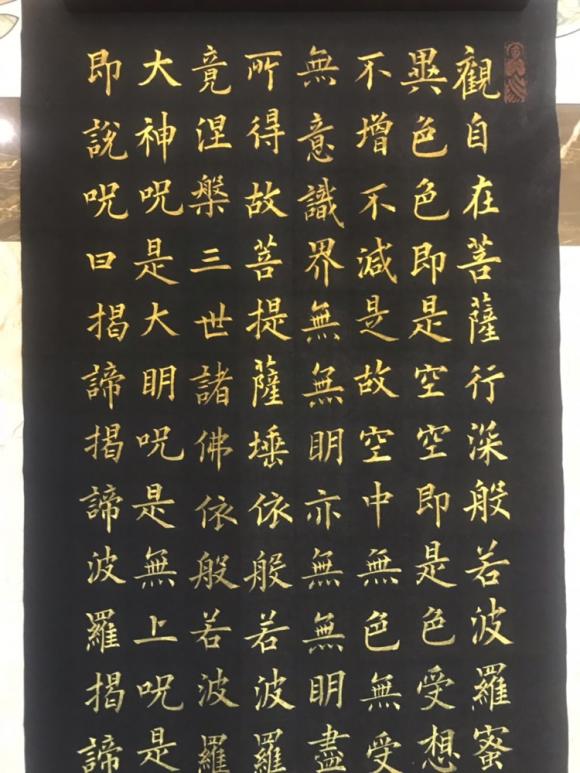 觀自在菩薩行深般若波羅蜜
異色色即是空空即是色受想
不增不減是故空中無色無受
無意識界無無明亦無無明盡
所得故菩提薩埵依般若波羅
竟涅槃三世諸佛依般若波羅
大神呪是大明呪是無上呪是
即說呪曰揭諦揭諦波羅揭諦